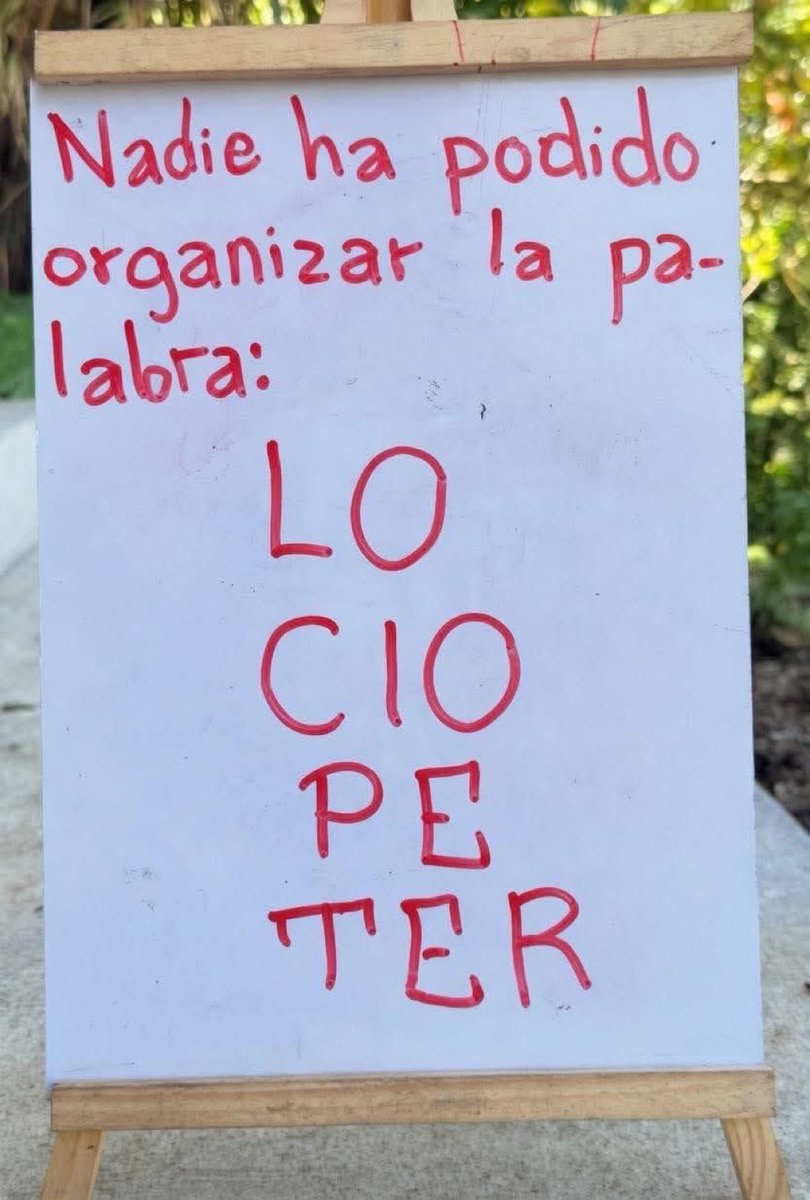 Nadie ha podido
organizar la pa-
labra:
LO
CIO
PE
TER